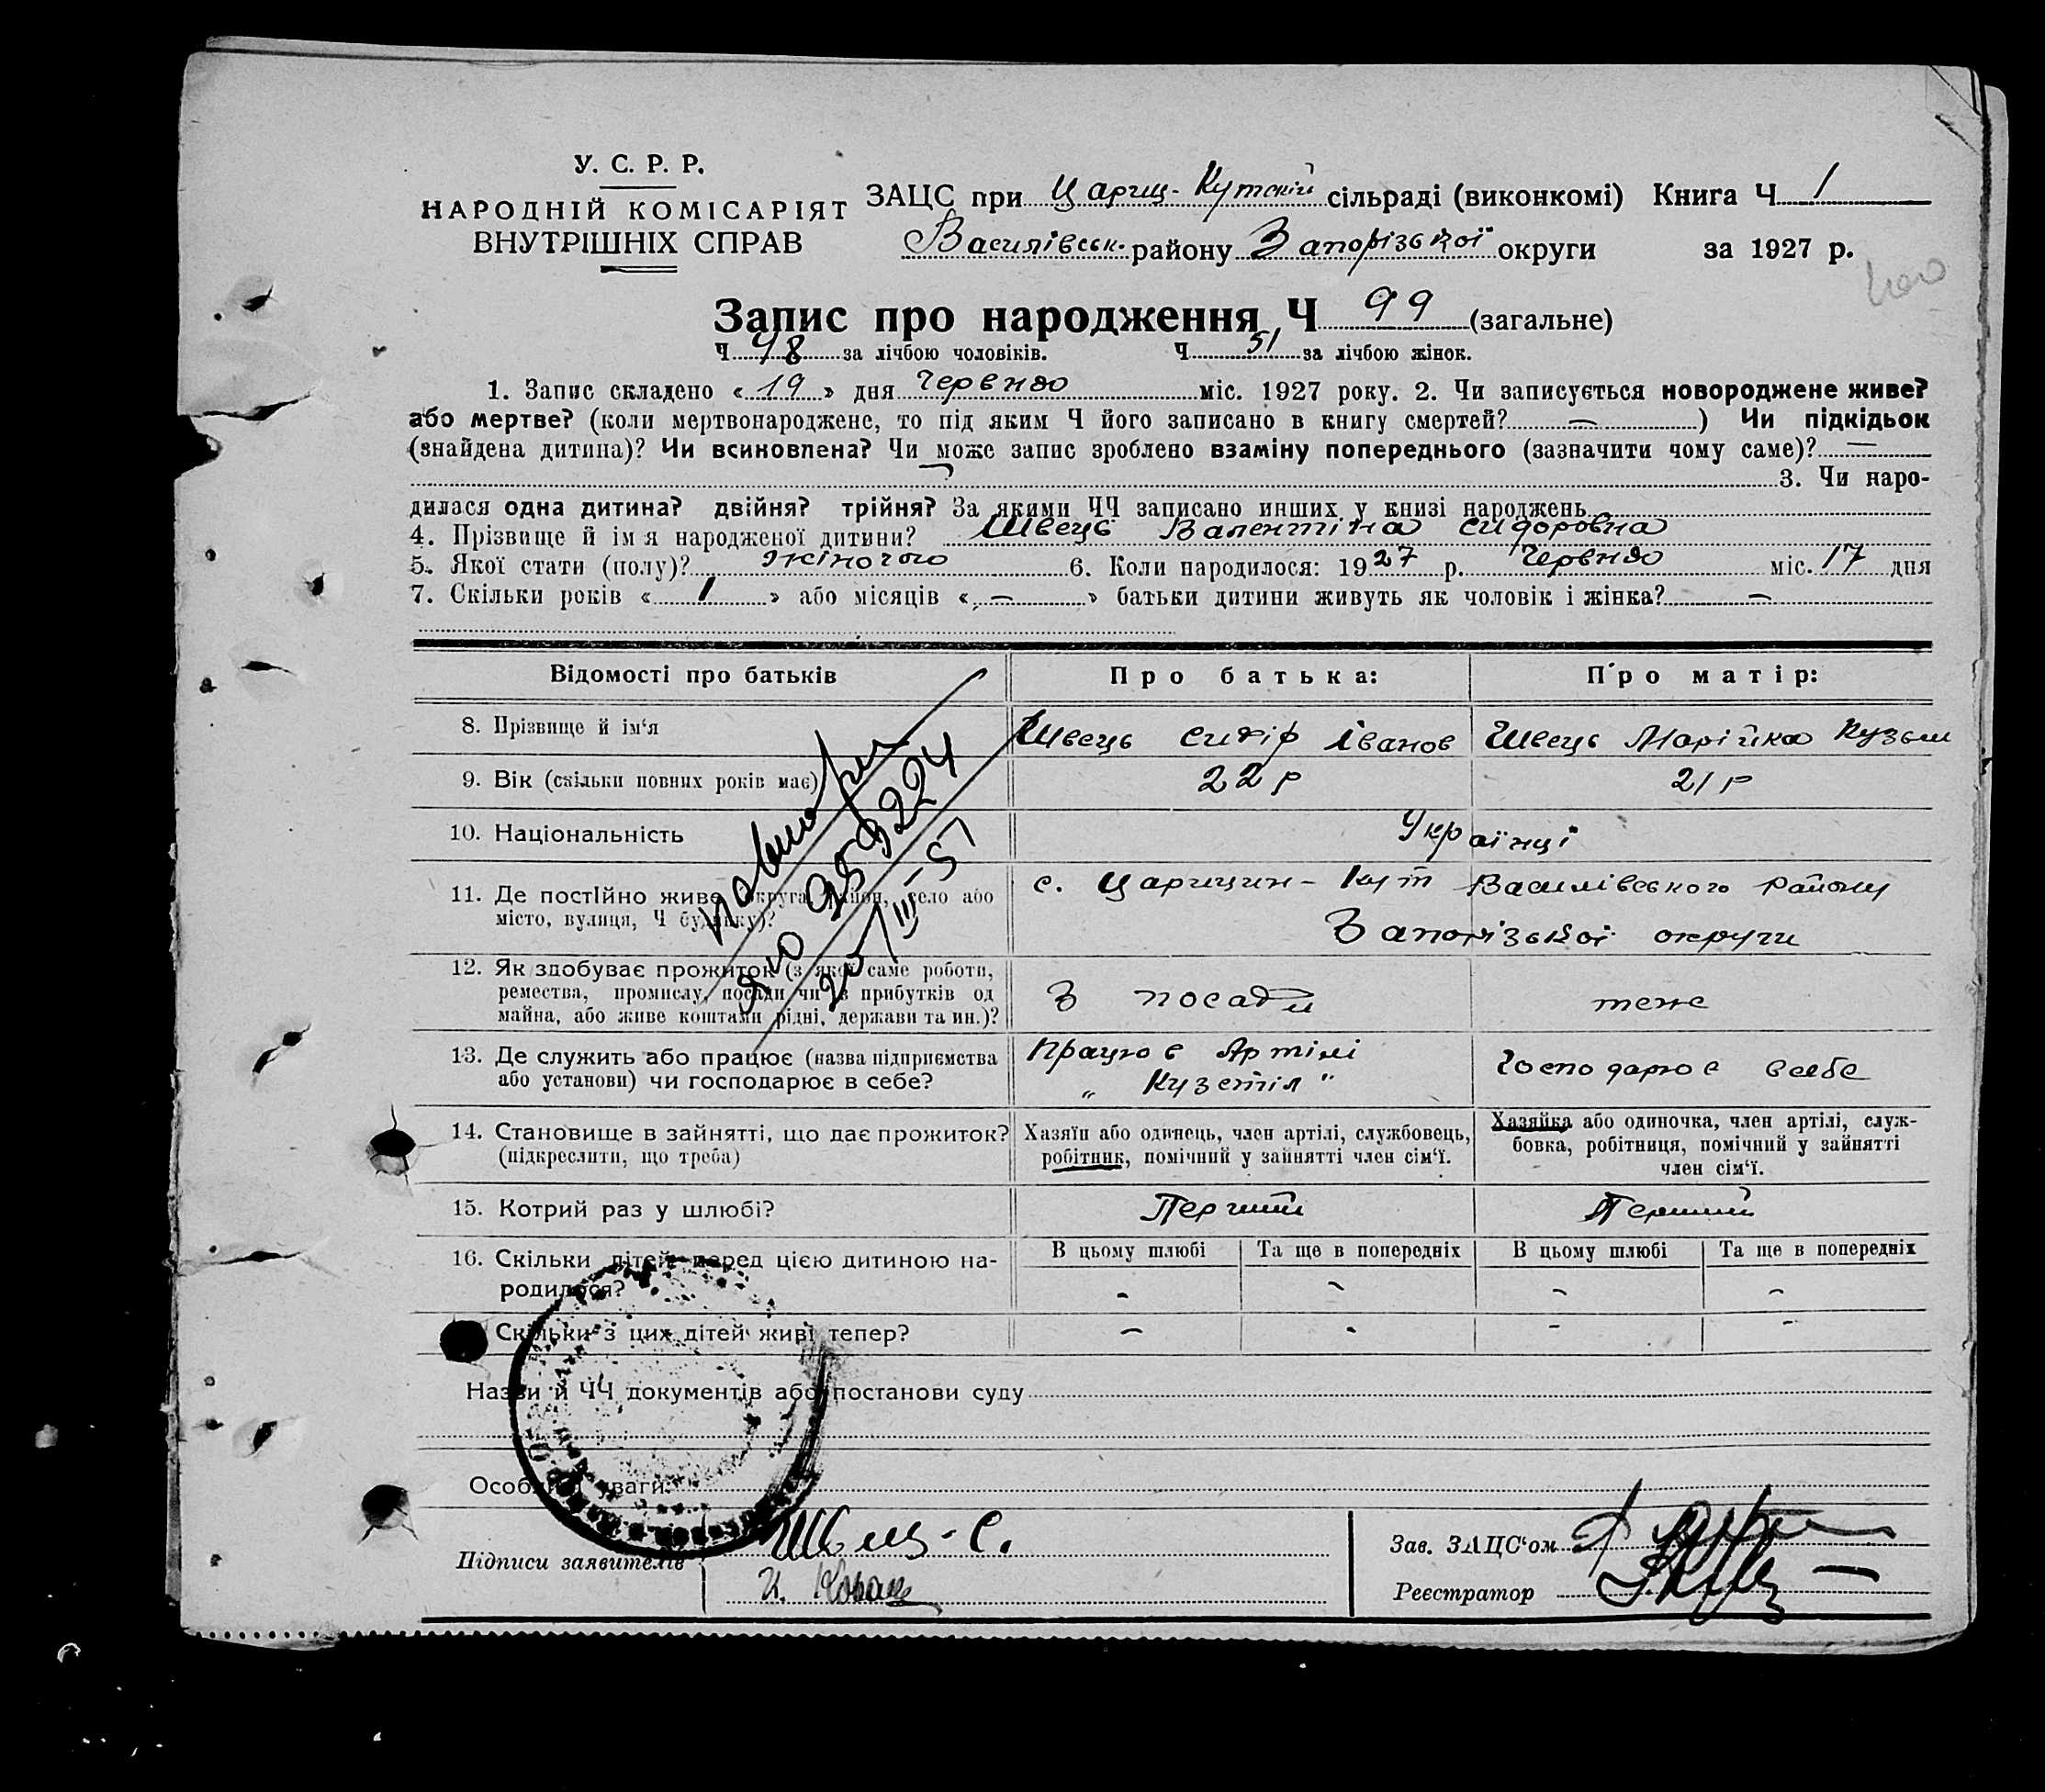 У. С. Р. Р.
НАРОДНІЙ КОМІСАРІЯТ
ВНУТРІШНІХ СПРАВ
ЗАЦС при Цариц-Кутській сільраді (виконкомі) Книга Ч 1
Василівськ. району Запорізької округи за 1927 р.
Запис про народження Ч 99 (загальне)
Ч 48 за лічбою чоловіків. Ч 51 за лічбою жінок.
1. Запис складено «19» дня червня міс. 1927 року. 2. Чи записується новороджене живе?
або мертве? (коли мертвонароджене, то під яким Ч його записано в книгу смертей? — ) Чи підкідьок
(знайдена дитина)? Чи всиновлена? Чи може запис зроблено взаміну попереднього (зазначити чому саме)? —
3. Чи наро-
дилася одна дитина? двійня? трійня? За якими ЧЧ записано инших у книзі народжень
4. Прізвище й ім я народженої дитини? Швець Валентіна Сидоровна
5. Якої стати (полу)? жіночого 6. Коли народилося: 1927 р. червня міс. 17 дня
7. Скільки років «1» або місяців «—» батьки дитини живуть як чоловік і жінка? —
Відомості про батьків Про батька: Про матір:
8. Прізвище й ім‘я Швець Сидір Іванов Швець Марійка Кузьм
9. Вік (скільки повних років має) 22 р 21 р
10. Національність Українці
11. Де постійно живе (округа, район, село або
місто, вулиця, Ч будинку)?
с. Царицин-Кут Василівського району
Запорізької округи
12. Як здобуває прожиток (з якої саме роботи,
ремества, промислу, посади чи з прибутків од
майна, або живе коштами рідні, держави та ин.)?
З посади теж
13. Де служить або працює (назва підприємства
або установи) чи господарює в себе?
Працює Артілі
Господарює в себе
14. Становище в зайнятті, що дає прожиток?
(підкреслити, що треба)
Хазяїн або одинець, член артілі, службовець,
робітник, помічний у зайнятті член сім‘ї.
Хазяйка або одиночка, член артілі, служ-
бовка, робітниця, помічний у зайнятті
член сім‘ї.
15. Котрий раз у шлюбі? Перший Перший
16. Скільки дітей перед цією дитиною на-
родилося?
В цьому шлюбі Та ще в попередніх В цьому шлюбі Та ще в попередніх
- - - -
Скільки з цих дітей живі тепер? - - - -
Назви й ЧЧ документів або постанови суду
Особливі уваги:
Підписи заявителів Швец-С.
Зав. ЗАЦС‘ом
Реєстратор